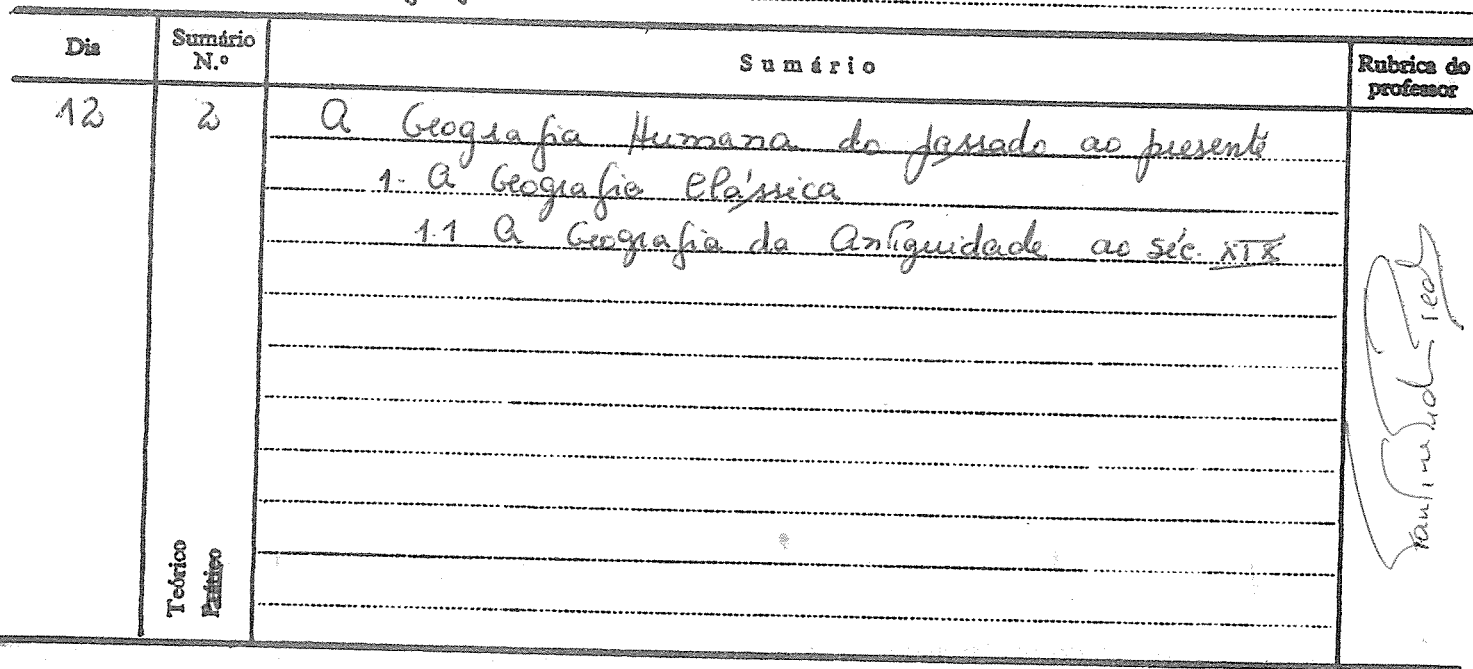 Dia
Sumário N.º
Sumário
Rubrica do professor
12
2
A Geografia Humana do passado ao presente
1. A Geografia Clássica
1.1 A Geografia da Antiguidade ao séc. XIX
Teórico
Prático